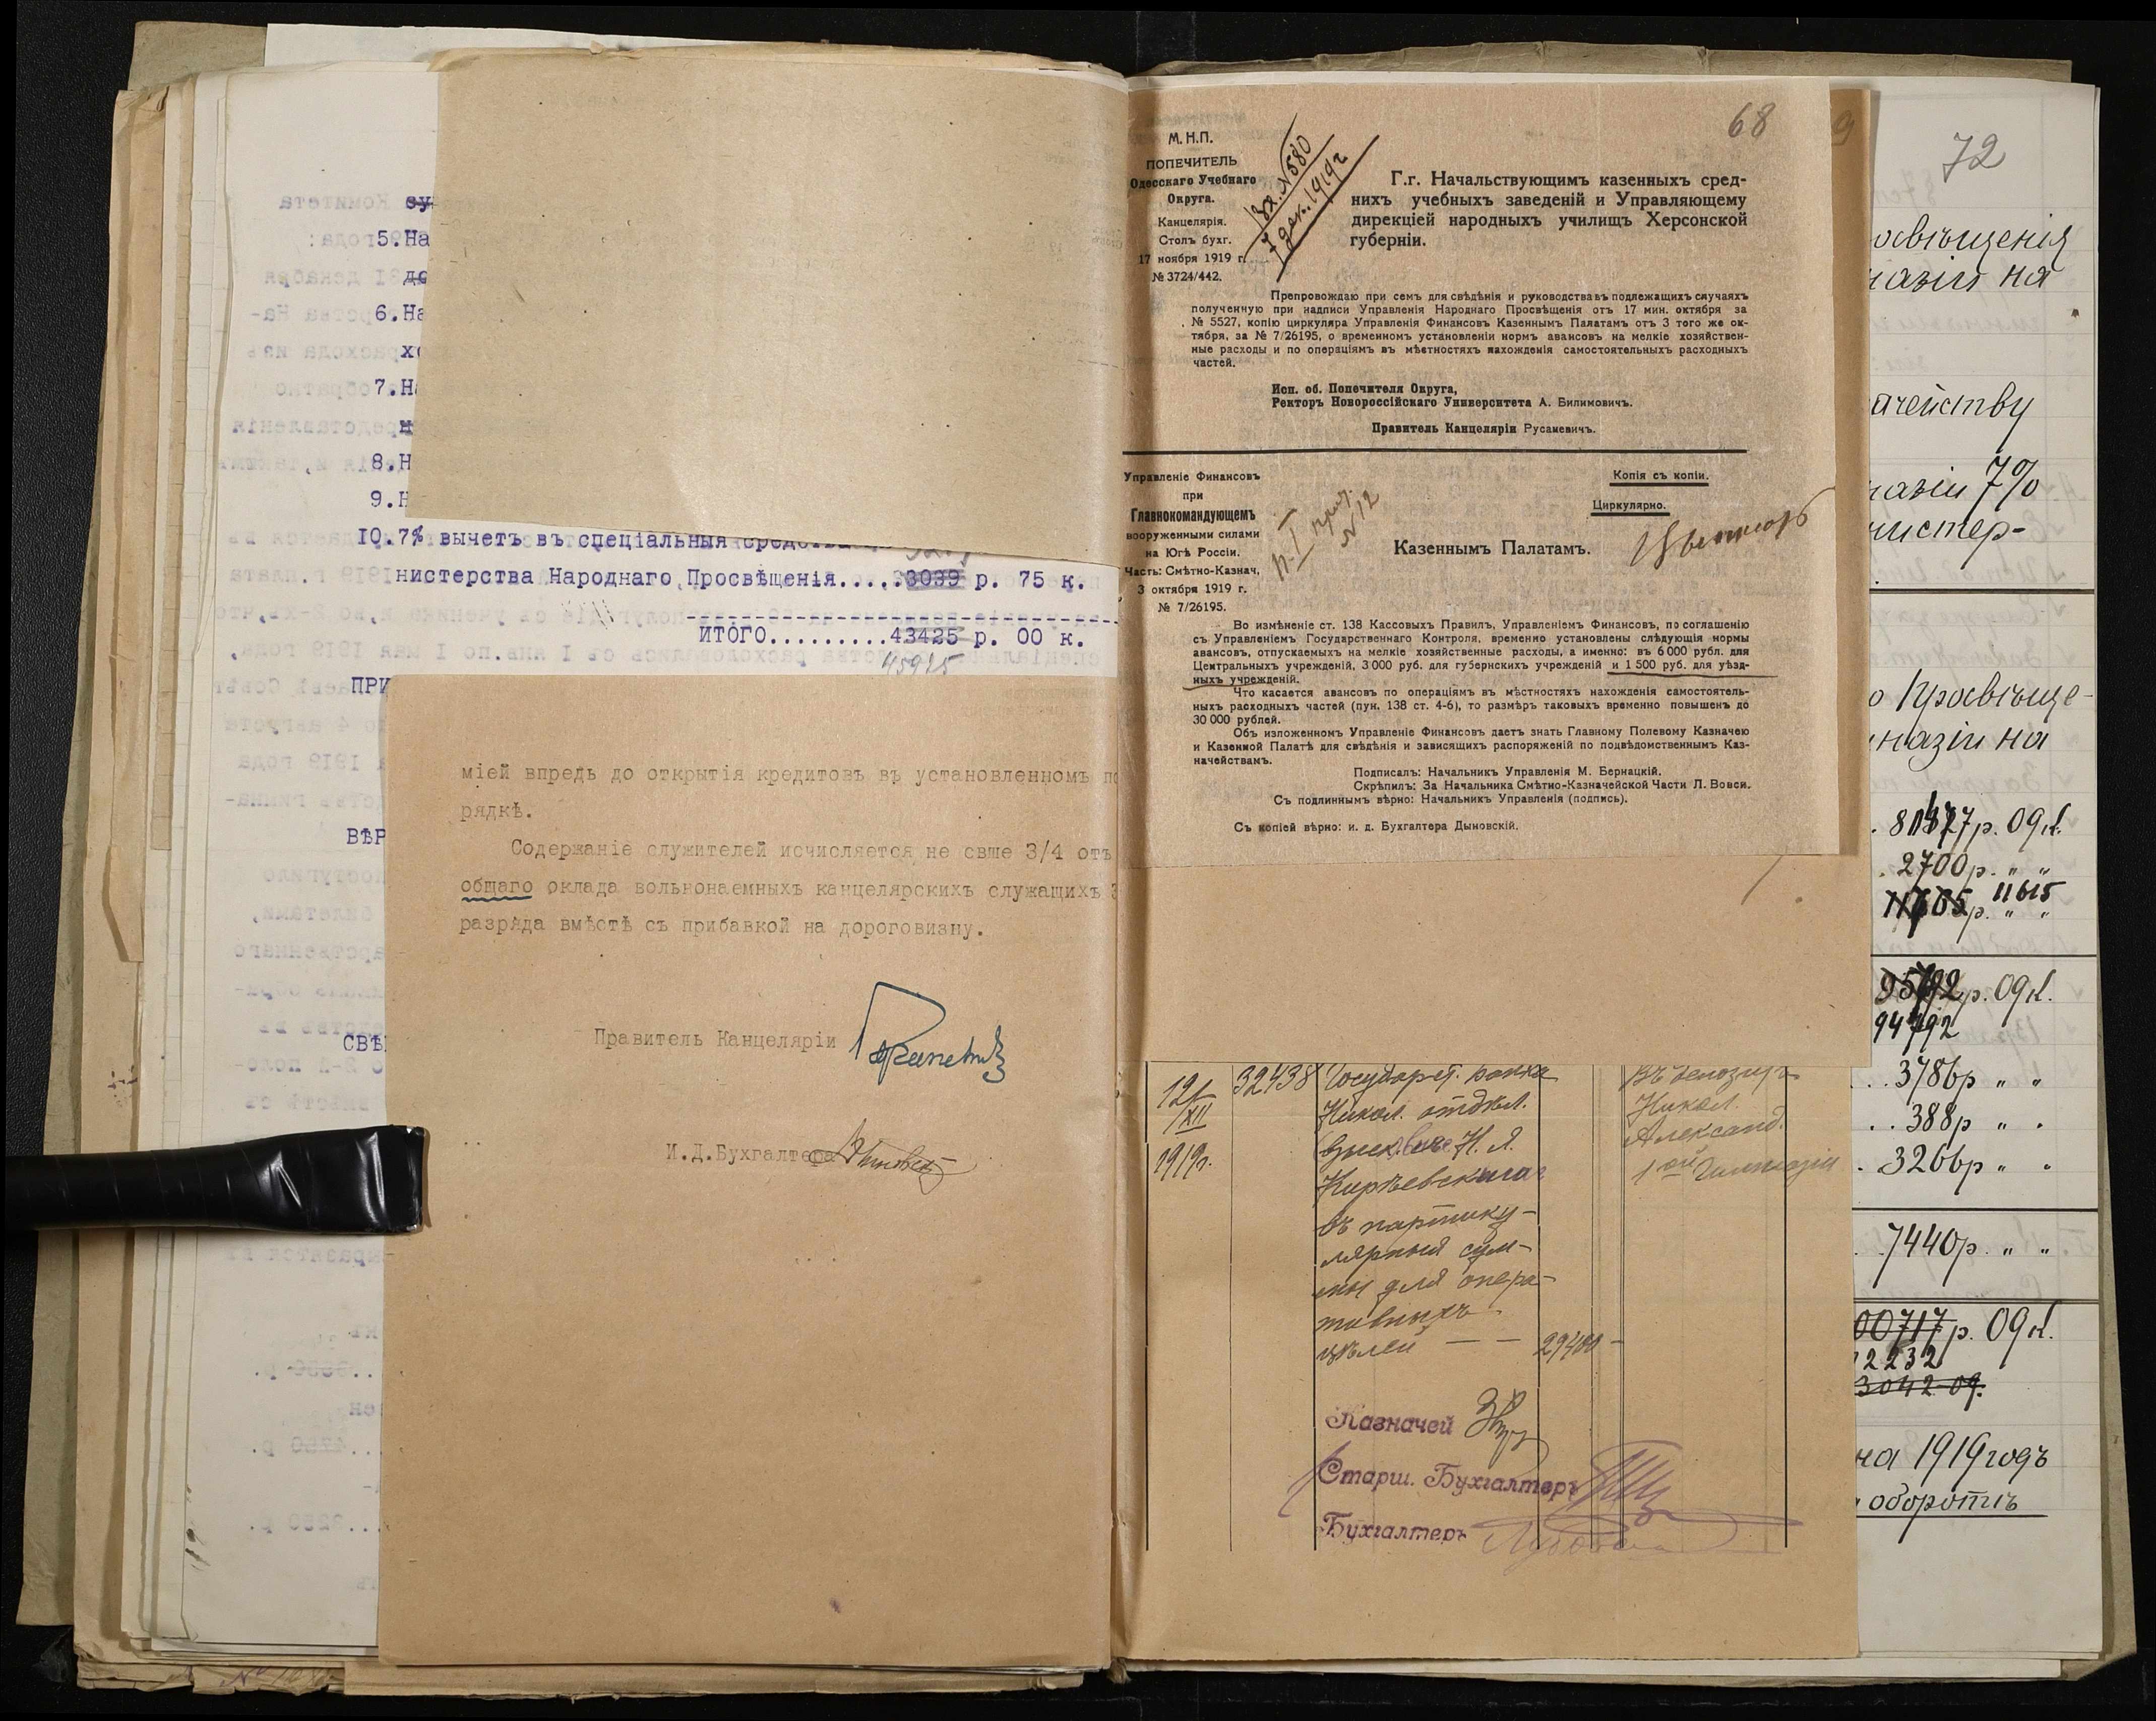 5.На
6.На
7.На
8.Н
9.Н
10.7% вычетъ въ спеціальныя средства
нистерства Народнаго Просвѣщенія.....3039 р. 75 к.
ИТОГО.........43425 р. 00 к.
45925
ПРИ
ВѢР
СВѢ
міей впредь до открытія кредитовъ въ установленномъ по
рядкѣ.
Содержаніе служителей исчисляется не свше 3/4 отъ
общаго оклада вольнонаемныхъ канцелярскихъ служащихъ 3
разряда вмѣстѣ съ прибавкой на дороговизну.
Правитель Канцеляріи
И.Д.Бухгалтера
68
М.Н.П.
ПОПЕЧИТЕЛЬ
Одесскаго Учебнаго
Округа.
Канцелярія.
Столъ бухг.
17 ноября 1919 г.
№ 3724/442.
Вх. №580
7 дек. 1919 г
Г.г. Начальствующимъ казенныхъ сред-
нихъ учебныхъ заведеній и Управляющему
дирекціей народныхъ училищъ Херсонской
губерніи.
Препровождаю при семъ для свѣдѣнія и руководства въ подлежащихъ случаяхъ
полученную при надписи Управленія Народнаго Просвѣщенія отъ 17 мин. октября за
№ 5527, копію циркуляра Управленія Финансовъ Казеннымъ Палатамъ отъ 3 того же ок-
тября, за № 7/26195, о временномъ установленіи нормъ авансовъ на мелкіе хозяйствен-
ные расходы и по операціямъ въ мѣстностяхъ нахожденія самостоятельныхъ расходныхъ
частей.
Исп. об. Попечителя Округа,
Ректоръ Новороссійскаго Университета А. Билимовичъ.
Правитель Канцеляріи Русаневичъ.
Управленіе Финансовъ
при
Главнокомандующемъ
вооруженными силами
на Югѣ Россіи.
Часть: Смѣтно-Казнач,
3 октября 1919 г.
№ 7/26195.
Копія съ копіи.
Циркулярно.
Казеннымъ Палатамъ.
Во измѣненіе ст. 138 Кассовыхъ Правилъ, Управленіемъ Финансовъ, по соглашенію
съ Управленіемъ Государственнаго Контроля, временно установлены слѣдующія нормы
авансовъ, отпускаемыхъ на мелкіе хозяйственные расходы, а именно: въ 6 000 рубл. для
Центральныхъ учрежденій, 3 000 руб. для губернскихъ учрежденій и 1 500 руб. для уѣзд-
ныхъ учрежденій.
Что касается авансовъ по операціямъ въ мѣстностяхъ нахожденія самостоятель-
ныхъ расходныхъ частей (пун. 138 ст. 4-6), то размѣръ таковыхъ временно повышенъ до
30 000 рублей.
Объ изложенномъ Управленіе Финансовъ даетъ знать Главному Полевому Казначею
и Казенной Палатѣ для свѣдѣнія и зависящихъ распоряженій по подвѣдомственнымъ Каз-
начействамъ.
Подписалъ: Начальникъ Управленія М. Бернацкій.
Скрѣпилъ: За Начальника Смѣтно-Казначейской Части Л. Вовси.
Съ подлиннымъ вѣрно: Начальникъ Управленія (подпись).
Съ копіей вѣрно: и. д. Бухгалтера Дыновскій.
12/XII 32438 Государст. банка
Никол. отдѣл.
Н. Я.
Кирѣевскаго
въ партику-
лярныя сум-
мы для опера-
тивныхъ
цѣлей — — 29400 —
Въ депозитъ
Никол.
Александ.
1ой Гимназіи
1919г.
Казначей
Старш. Бухгалтеръ
Бухгалтеръ
72
овѣщенія
назіи на
ачейству
назіи 7%
нистер-
о Просвѣще-
назіи на
р. 09 к.
2700р. „ „
11615
р. 09 к.
94792
3786р „ „
388р „ „
3266р „ „
7440р. „ „
00717р. 09 к.
12232
3042-09.
на 1919 годъ
оборотѣ